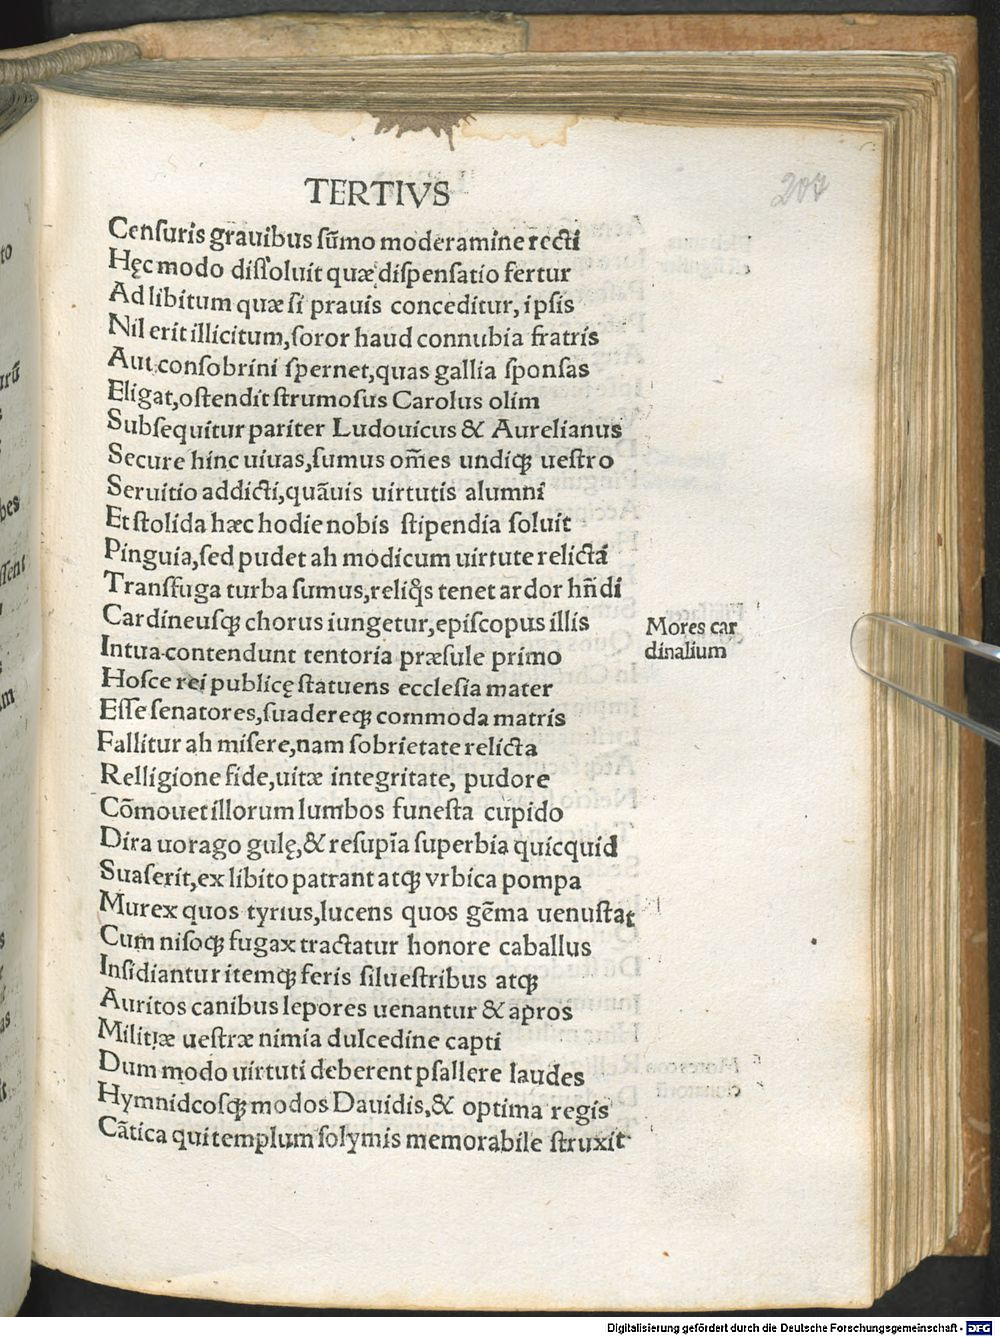 TERTIVS
207
Cenſuris grauibus ſum̄o moderamine recti
Hęc modo diſſoluit quæ diſpenſatio fertur
Ad libitum quæ ſi prauis conceditur, ipſis
Nil erit illicitum, ſoror haud connubia fratris
Aut conſobrini ſpernet, quas gallia ſponſas
Eligat, oſtendit ſtrumoſus Carolus olim
Subſequitur pariter Ludouicus & Aurelianus
Secure hinc uiuas, ſumus om̄es undiqꝫ ueſtro
Seruitio addicti, quāuis uirtutis alumni
Et ſtolida hæc hodie nobis ſtipendia ſoluit
Pinguia, ſed pudet ah modicum uirtute relicta
Transfuga turba ſumus, reliq̄s tenet ardor hn̄di
Cardineuſqꝫ chorus iungetur, epiſcopus illis
Mores car
dinalium
In tua contendunt tentoria præſule primo
Hoſce rei publicę ſtatuens eccleſia mater
Eſſe ſenatores, ſuadereqꝫ commoda matris
Fallitur ah miſere, nam ſobrietate relicta
Relligione fide, uitæ integritate, pudore
Cōmouet illorum lumbos funeſta cupido
Dira uorago gulę, & reſupīa ſuperbia quicquid
Suaſerit, ex libito patrant atqꝫ vrbica pompa
Murex quos tyrius, lucens quos gēma uenuſtat
Cum niſoqꝫ fugax tractatur honore caballus
Inſidiantur itemqꝫ feris ſilueſtribus atqꝫ
Auritos canibus lepores uenantur & apros
Militiæ ueſtræ nimia dulcedine capti
Dum modo uirtuti deberent pſallere laudes
Hymnidcoſqꝫ modos Dauidis, & optima regis
Cātica qui templum ſolymis memorabile ſtruxit
Digitalisierung gefördert durch die Deutsche Forschungsgemeinschaft - DFG